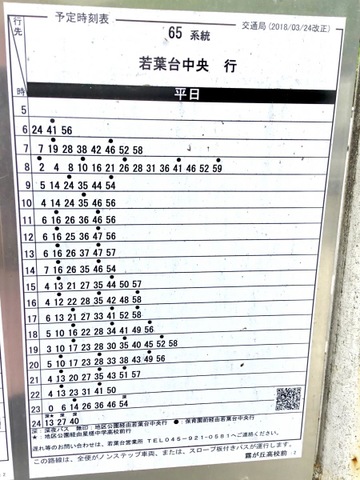 行先
予定時刻表
65 系統
交通局(2018/03/24改正)
若葉台中央 行
時
平日
5
6 24 41 56
7 7 19 28 38 42 46 52 58
8 2 4 8 10 16 21 26 28 31 36 41 46 52 59
9 5 14 24 35 44 54
10 4 14 24 35 46 56
11 6 16 26 36 46 56
12 6 16 25 36 47 56
13 6 16 26 36 47 57
14 7 16 26 35 46 54
15 4 13 21 27 35 44 50 57
16 4 12 22 28 35 42 48 58
17 6 13 21 27 33 41 52 58
18 5 10 16 22 28 34 41 49 56
19 3 10 17 23 30 35 40 45 52 58
20 5 10 17 23 28 33 38 43 49 56
21 4 13 20 27 35 43 51 57
22 4 13 23 31 41 50
23 0 6 14 26 36 46 54
24 13 27 40
深:深夜バス 無印:地区公園経由若葉台中央行 ●:保育園前経由若葉台中央行
遅れ等のお問い合わせは、若葉台営業所 TEL045-921-0561へご連絡ください。
この路線は、全便がノンステップ車両、または、スロープ板付きバスが運行します。
霧が丘高校前